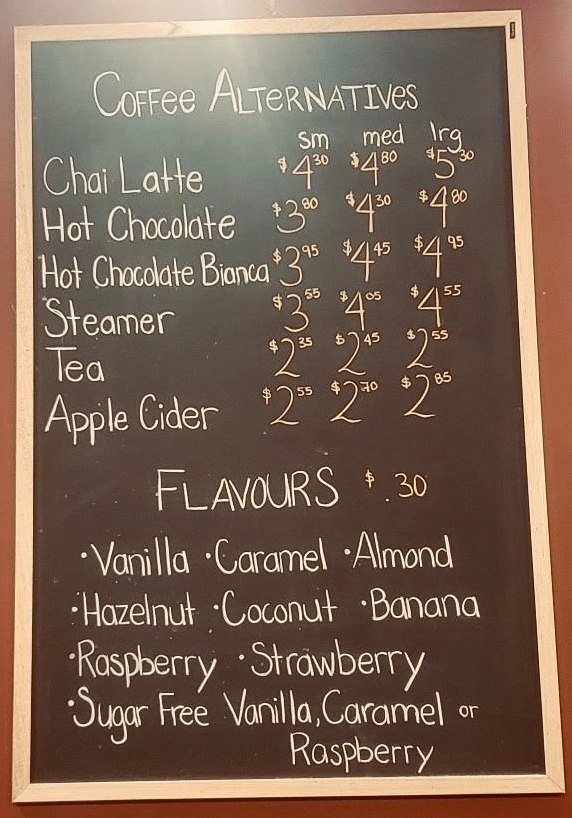 Coffee Alternatives
sm med lrg
Chai Latte $4.30 $4.80 $5.30
Hot Chocolate $3.80 $4.30 $4.80
Hot Chocolate Bianca $3.95 $4.45 $4.95
Steamer $3.55 $4.05 $4.55
Tea $2.35 $2.45 $2.55
Apple Cider $2.55 $2.70 $2.85
FLAVOURS $.30
·Vanilla ·Caramel ·Almond
·Hazelnut ·Coconut ·Banana
·Raspberry ·Strawberry
·Sugar Free Vanilla, Caramel or
Raspberry